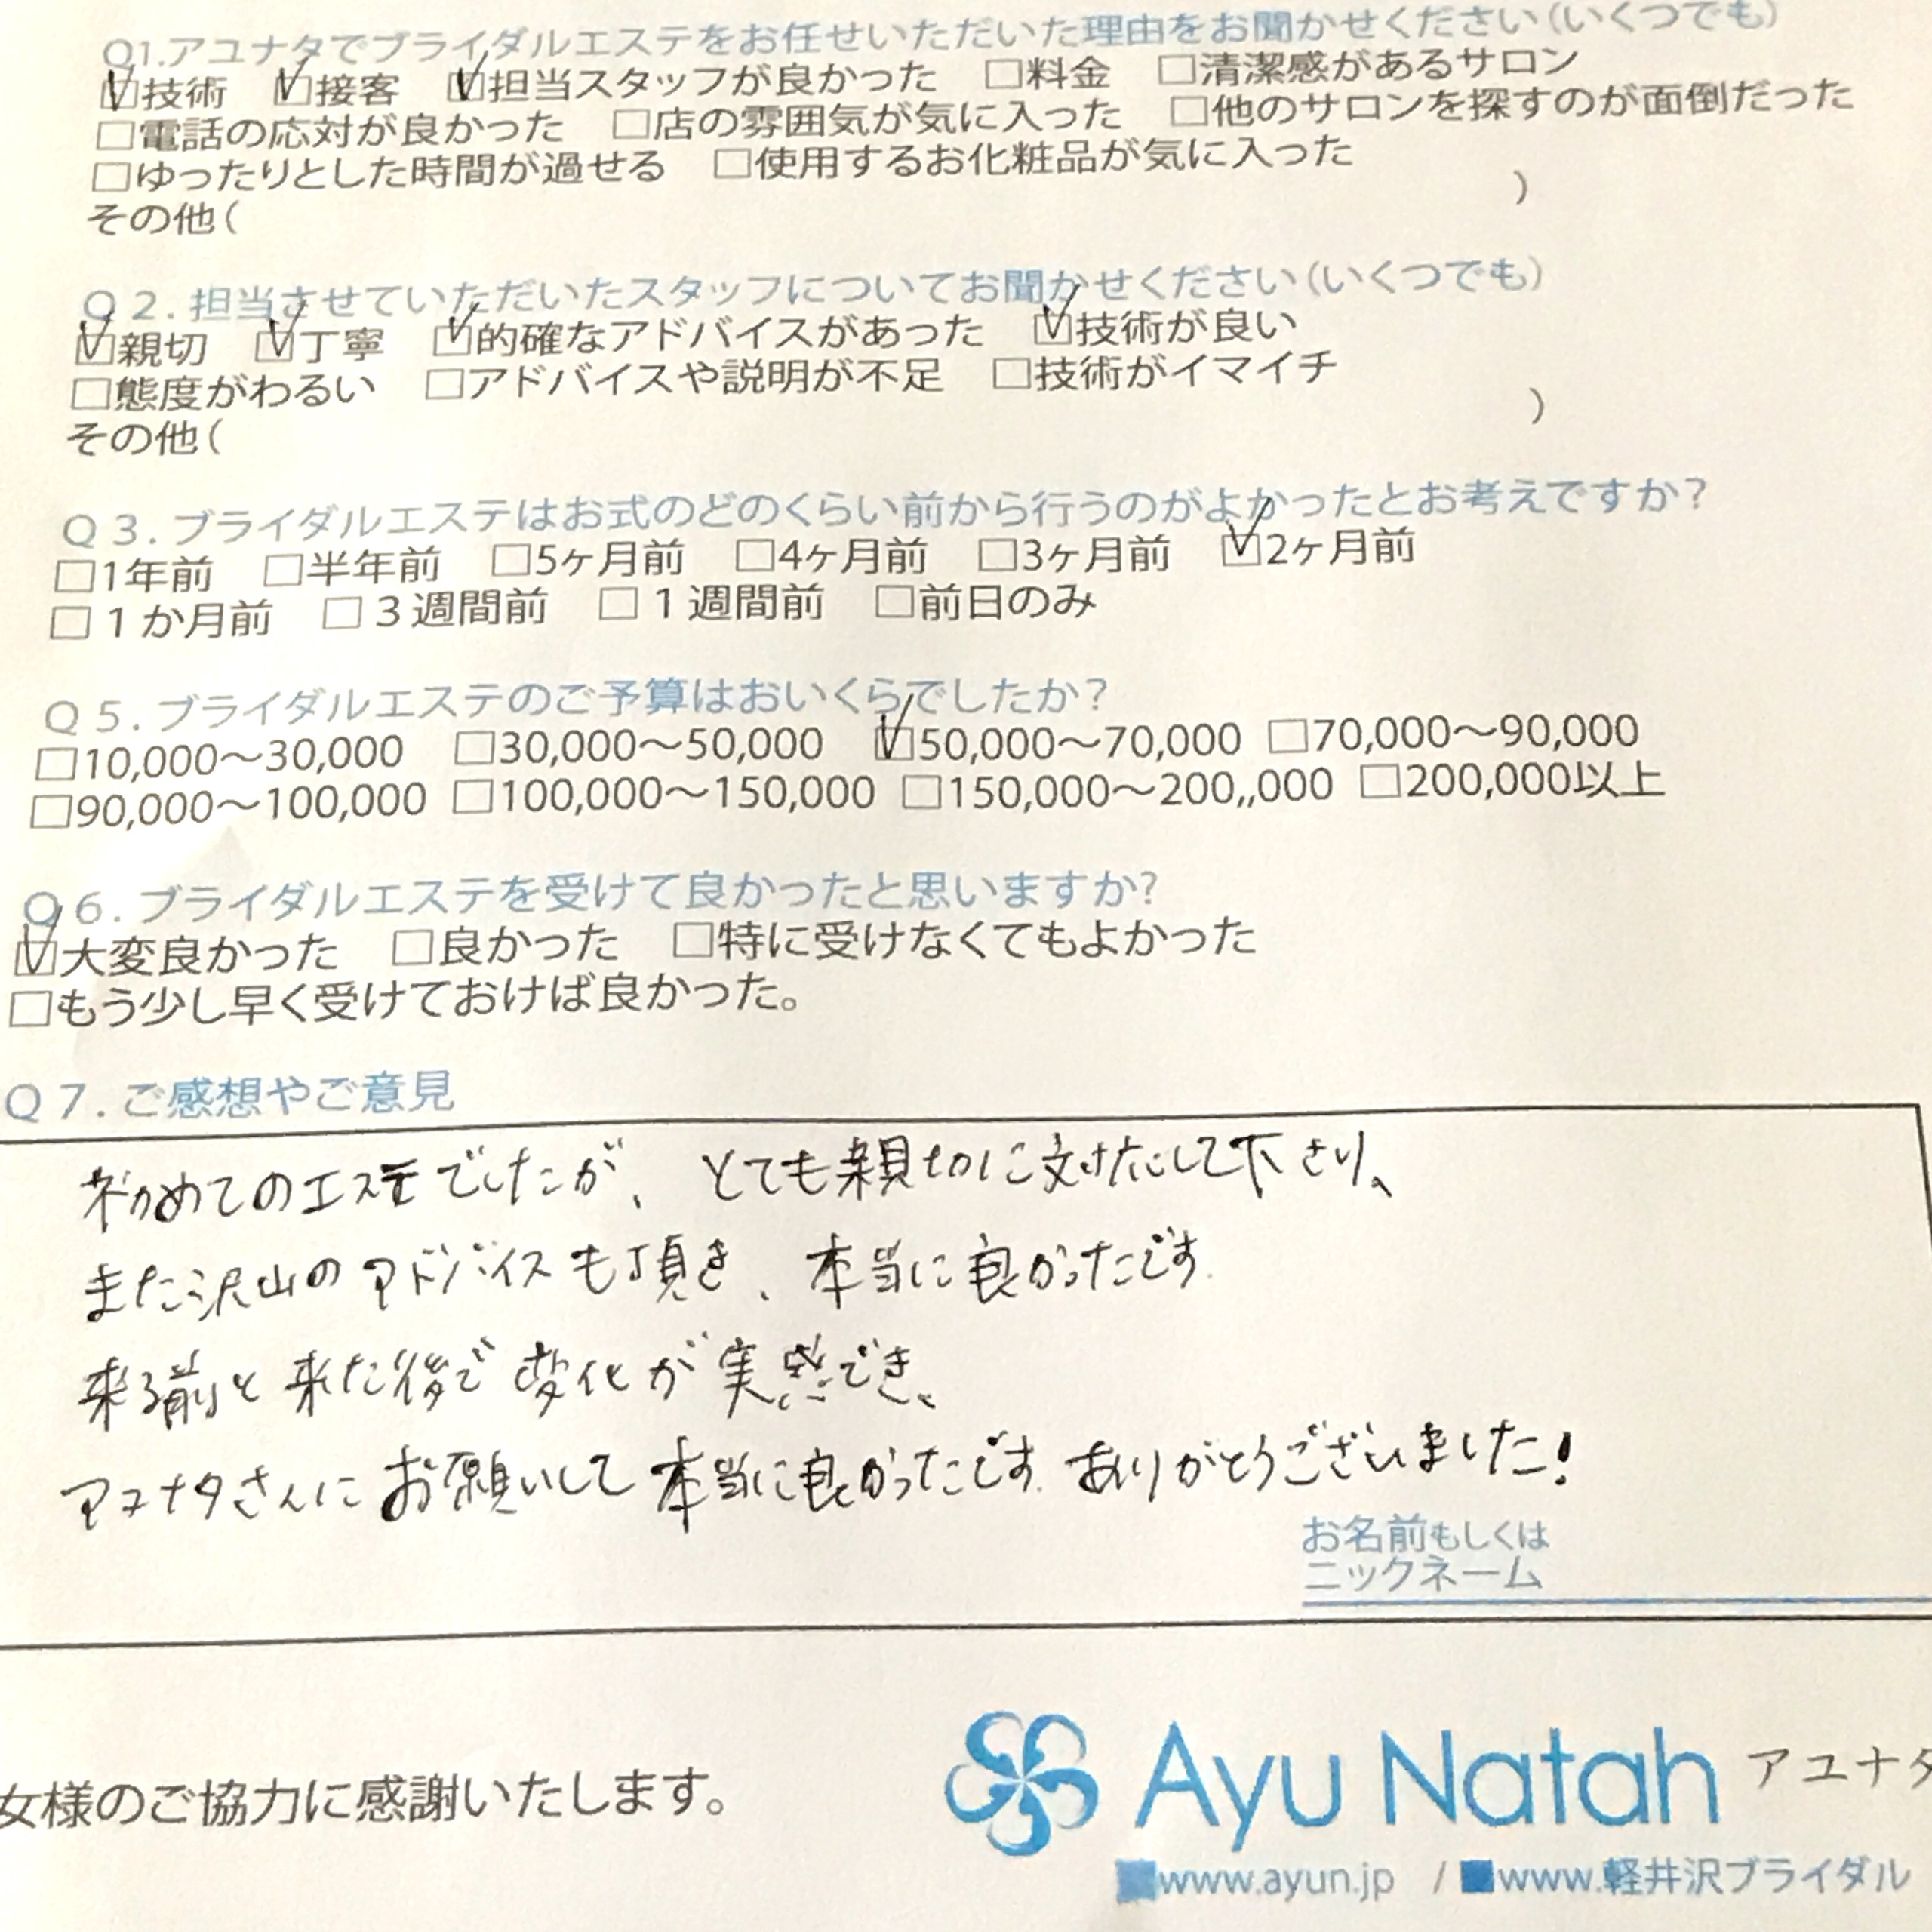 Q1.アユナタでブライダルエステをお任せいただいた理由をお聞かせください(いくつでも)
☑技術 ☑接客 ☑担当スタッフが良かった □料金 □清潔感があるサロン
□電話の応対が良かった □店の雰囲気が気に入った □他のサロンを探すのが面倒だった
□ゆったりとした時間が過せる □使用するお化粧品が気に入った
その他( )
Q2.担当させていただいたスタッフについてお聞かせください(いくつでも)
☑親切 ☑丁寧 ☑的確なアドバイスがあった ☑技術が良い
□態度がわるい □アドバイスや説明が不足 □技術がイマイチ
その他( )
Q3.ブライダルエステはお式のどのくらい前から行うのがよかったとお考えですか?
□1年前 □半年前 □5ヶ月前 □4ヶ月前 □3ヶ月前 ☑2ヶ月前
□1か月前 □3週間前 □1週間前 □前日のみ
Q5.ブライダルエステのご予算はおいくらでしたか?
□10,000～30,000 □30,000～50,000 ☑50,000～70,000 □70,000～90,000
□90,000～100,000 □100,000～150,000 □150,000～200,,000 □200,000以上
Q6.ブライダルエステを受けて良かったと思いますか?
☑大変良かった □良かった □特に受けなくてもよかった
□もう少し早く受けておけば良かった。
Q7.ご感想やご意見
初めてのエステでしたが、とても親切に対応して下さり、
また沢山のアドバイスも頂き、本当に良かったです.
来る前と来た後で変化が実感でき、
アユナタさんにお願いして本当に良かったです.ありがとうございました!
お名前もしくは
ニックネーム
女様のご協力に感謝いたします。
Ayu Natah アユナタ
■www.ayun.jp / ■www.軽井沢ブライダル